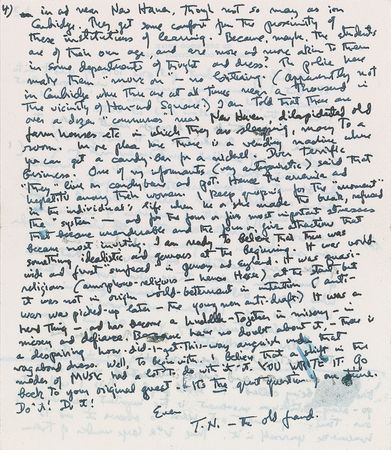 4) — in and near New Haven, though not so many as in
Cambridge. They get some comfort from the proximity of
these institutions of learning. Because, maybe, the students
are of their own age and are more and more akin to them
in some departments of thought and dress. The police here
make them "move in" — no loitering. (Apparently not
in Cambridge where there are at all times near a thousand in
the vicinity of Harvard Square.) I am told that there are
over a dozen "communes" near New Haven, dilapidated old
farm houses etc in which they are sleeping, many to a
room. In one place there is a vending machine where
you can get a candy-bar for a nickel. Does terrific
business. One of my informants (very authoritative) said that
"they live on candy bars and pot". Hence the
hepatitis among their women. I keep groping for the "moment"
in the individual's life when he or she made the break, refused
the "system" — and for the four or five most important stresses
that became unendurable and the four or five attractions that
became most inviting. I am ready to believe that there was
something idealistic and generous at the beginning. It was world
wide and first surfaced in Germany and England. It was quasi-
religious (amorphous-religious — never Hesse) at the start, but
it was not in origin world-betterment in intention (anti-
war was picked-up later — the young men anti-draft). It was a
herd thing — and has become a huddle-together in misery —
misery and defiance. have no doubt about it, — there is
a despairing how-did-I-get-this-way anguish that
vagabond dress. Well, to begin with, I believe that a shift in the
modes of MUSIC had a lot to do with it. YOU WRITE IT. Go
back to your original quest — it's THE great question in our time.
Do it! Do it!
Ever
T.N. — the old friend.